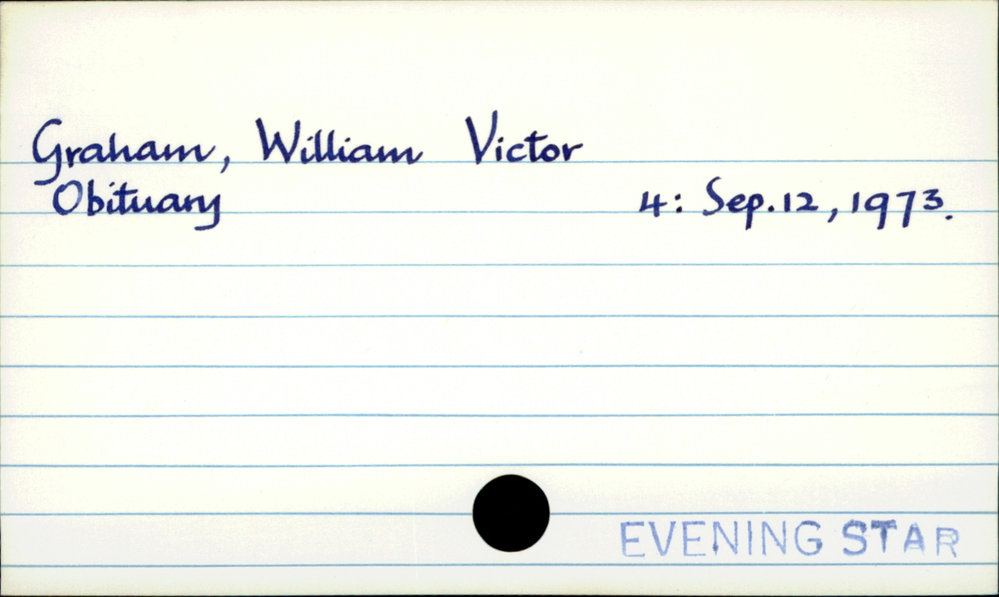 Graham, William Victor
Obituary 4: Sep.12, 1973.
EVENING STAR